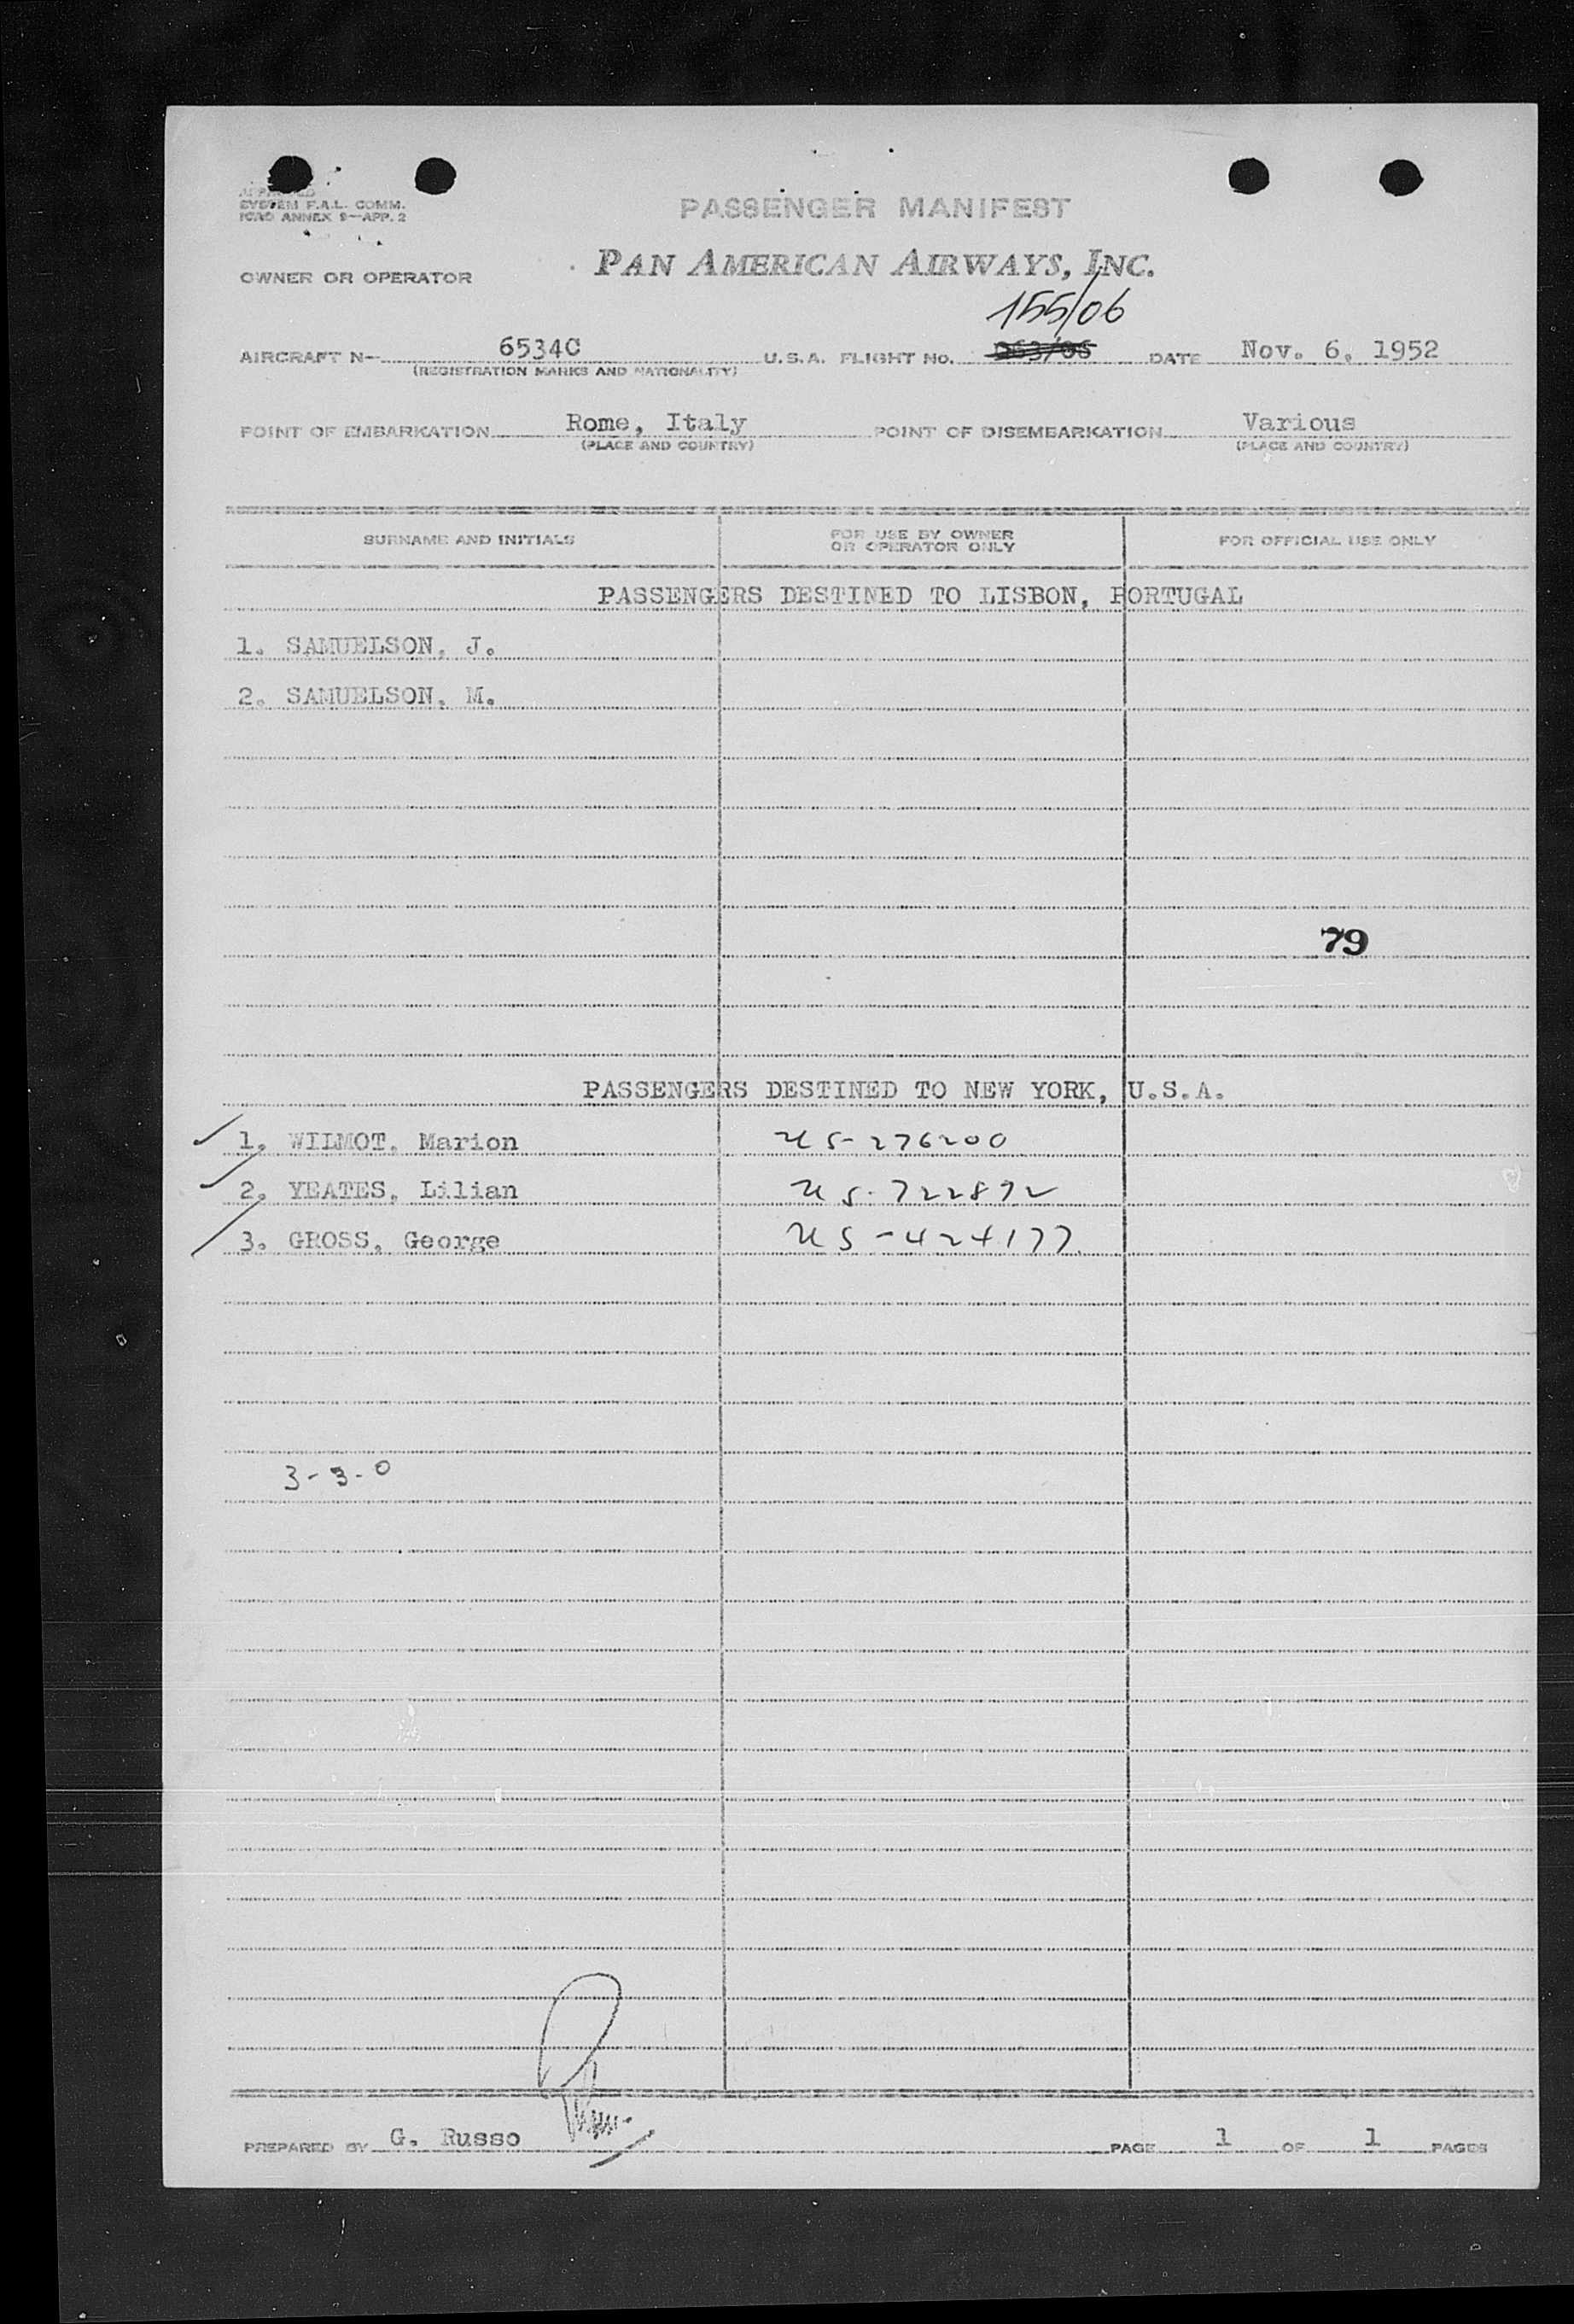 APPROVED
SYSTEM F.A.L. COMM.
ICAO ANNEX 9—APP. 2
PASSENGER MANIFEST
OWNER OR OPERATOR PAN AMERICAN AIRWAYS, INC.
155/06
AIRCRAFT N- 6534C U.S.A. FLIGHT NO. 063/06 DATE Nov. 6, 1952
(REGISTRATION MARKS AND NATIONALITY)
POINT OF EMBARKATION Rome, Italy POINT OF DISEMBARKATION Various
(PLACE AND COUNTRY) (PLACE AND COUNTRY)
SURNAME AND INITIALS FOR USE BY OWNER OR OPERATOR ONLY FOR OFFICIAL USE ONLY
PASSENGERS DESTINED TO LISBON, PORTUGAL
1. SAMUELSON, J.
2. SAMUELSON, M.
79
PASSENGERS DESTINED TO NEW YORK, U.S.A.
1. WILMOT, Marion US-276200
2. YEATES, Lilian US-722872
3. GROSS, George US-424177
3-3-0
PREPARED BY G. Russo PAGE 1 OF 1 PAGES